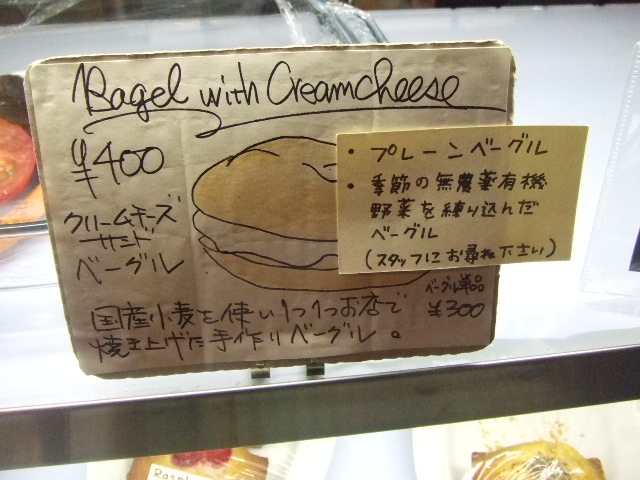 Bagel with Creamcheese
¥400
クリームチーズ
サンド
ベーグル
・プレーンベーグル
・季節の無農薬有機
野菜を練り込んだ
ベーグル
(スタッフにお尋ね下さい)
ベーグル単品
¥300
国産小麦を使い1つ1つお店で
焼き上げた手作りベーグル。